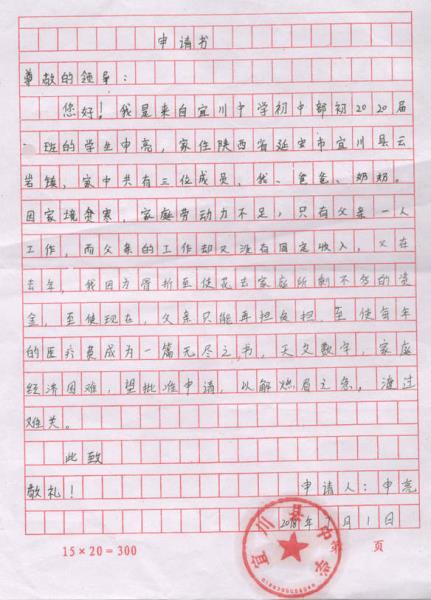 申请书
尊敬的领导：
您好！我是来自宜川中学初中部初2020届
一班的学生申亮，家住陕西省延安市宜川县云
岩镇，家中共有三位成员，我、爸爸、奶奶。
因家境贫寒，家庭劳动力不足，只有父亲一人
工作，而父亲的工作却又没有固定收入，又在
去年，我因为骨折至使花去家庭所剩不多的资
金，至使现在，父亲只能再担负担，至使每年
的医疗费成为一篇无尽之书，天文数字，家庭
经济困难，望批准申请，以解燃眉之急，渡过
难关。
此致
敬礼！ 申请人：申亮
年7月1日
15×20=300 第 页
宜川县中学